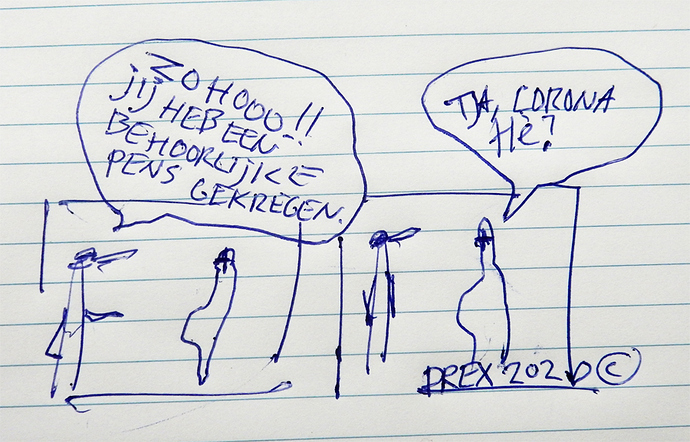 ZOHOOO!!
JIJ HEB EEN
BEHOORLIJKE
PENS GEKREGEN.
TJA, CORONA
HÈ?
DREX 2020 ©